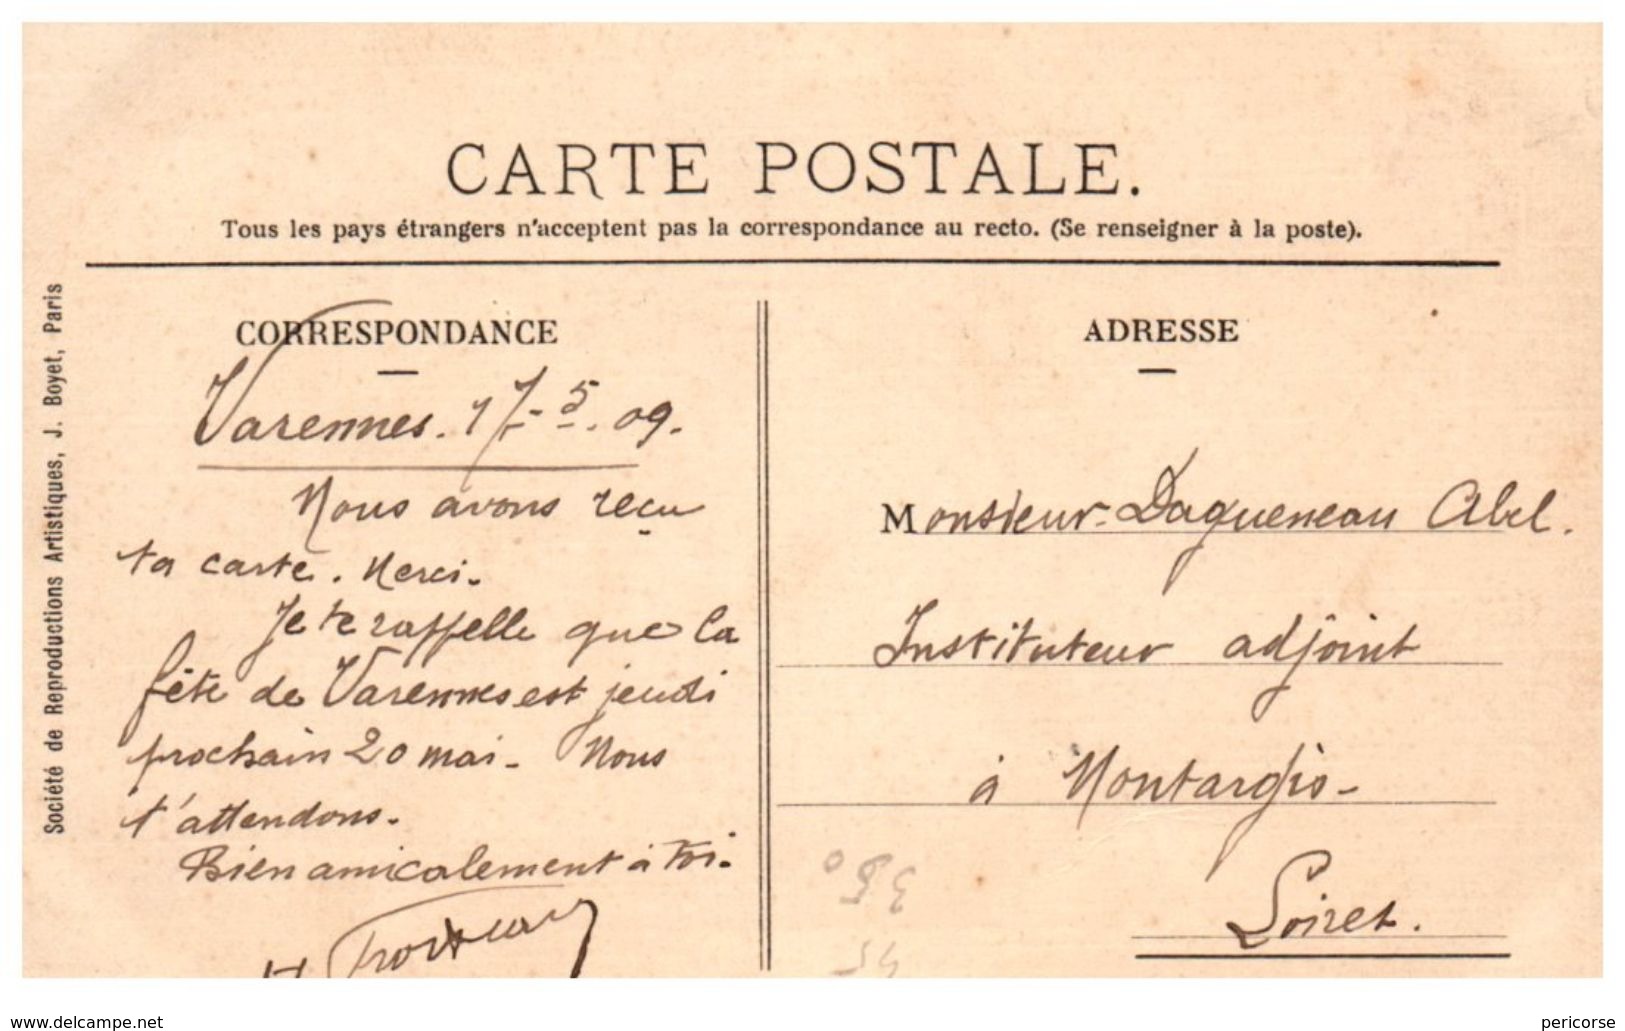 CARTE POSTALE.
Tous les pays étrangers n'acceptent pas la correspondance au recto. (Se renseigner à la poste).
Société de Reproductions Artistiques, J. Boyet, Paris
CORRESPONDANCE
Varennes. 17-5-.09.
Nous avons reçu
ta carte. Merci.
Je te rappelle que la
fête de Varennes est jeudi
prochain 20 mai. Nous
t'attendons.
Bien amicalement à toi.
ADRESSE
Monsieur Dagueneau Abel.
Instituteur adjoint
à Montargis-
Loiret.
www.delcampe.net
pericorse